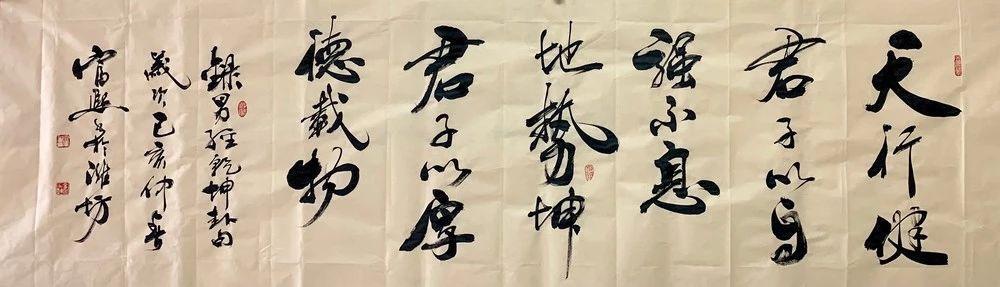 天行健
君子以自
强不息
地势坤
君子以厚
德载物
录易经乾坤卦句
岁次己亥仲春
于潍坊